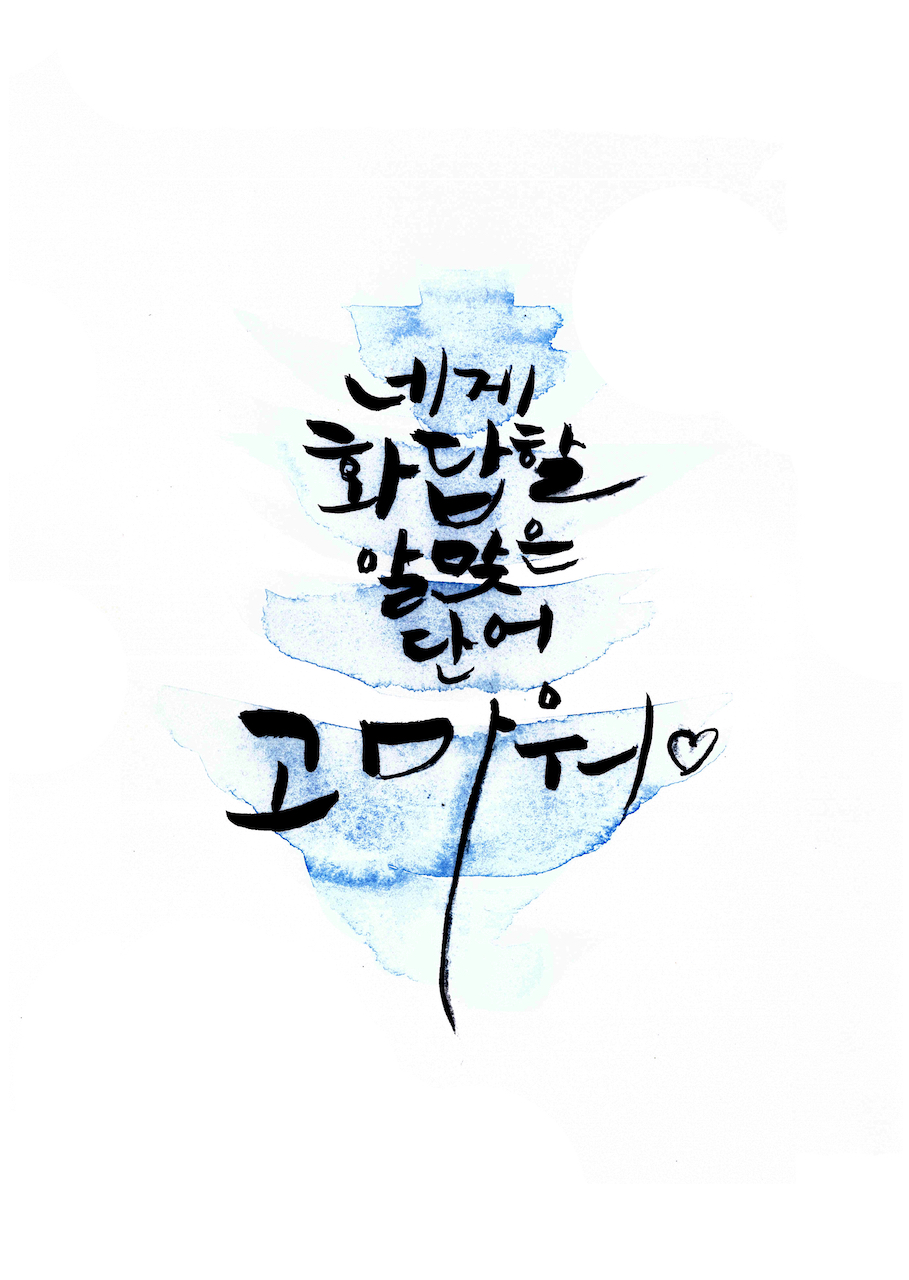 네게
화답할
알맞은
단어
고마워♡